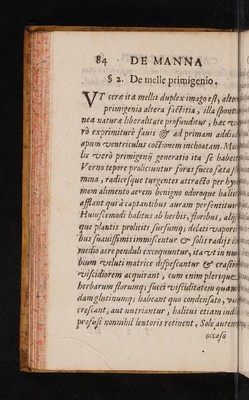 84 DE MANNA
§ 2. De melle primigenio.
VT ceræ ita mellis duplex imago est, altera
primigenia altera factitia, illa sponta
nea naturæ liberalitate profunditur, hæc ve
rò exprimitur è favis & ad primam addit
apum ventriculus coctionem inchoatam. Mel
lis verò primigenij generatio ita se habet.
Verno tepore proliciuntur foras succo fæta se
mina, radicesque turgentes attracto per hy
mem alimento aerem benigno odoroque halitu
afflant qui à captantibus auram persentitur.
Huiuscemodi halitus ab herbis, floribus, alijs
que plantis prolicitè sursumq; delati vapori
bus suavissimis immiscentur & solis radijs in
medio aere penduli excoquuntur, ita vt in nu
bium veluti matrice dispescantur & crasitie
viscidiorem acquirant, cum enim plerique
herbarum florumq; succi viscidita­tem quan
dam glutinumq; habeant quo condensato, vi
crescant, aut nutriantur, halitus etiam inde
profusi nonnihil lentoris retinent. Sole autem
occaso